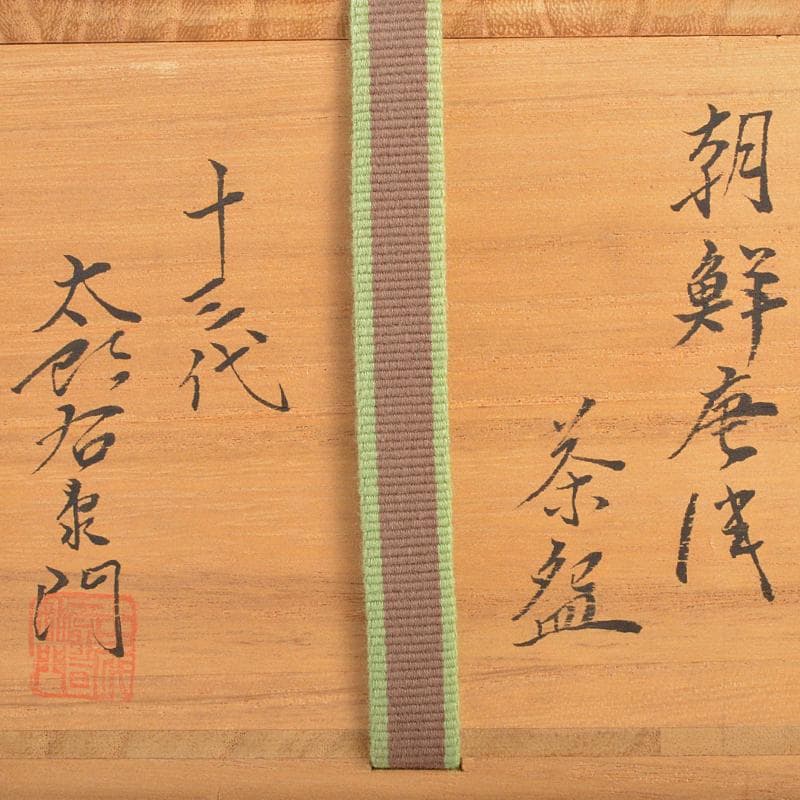 朝鮮唐津
茶盌
十三代
太郎右衛門